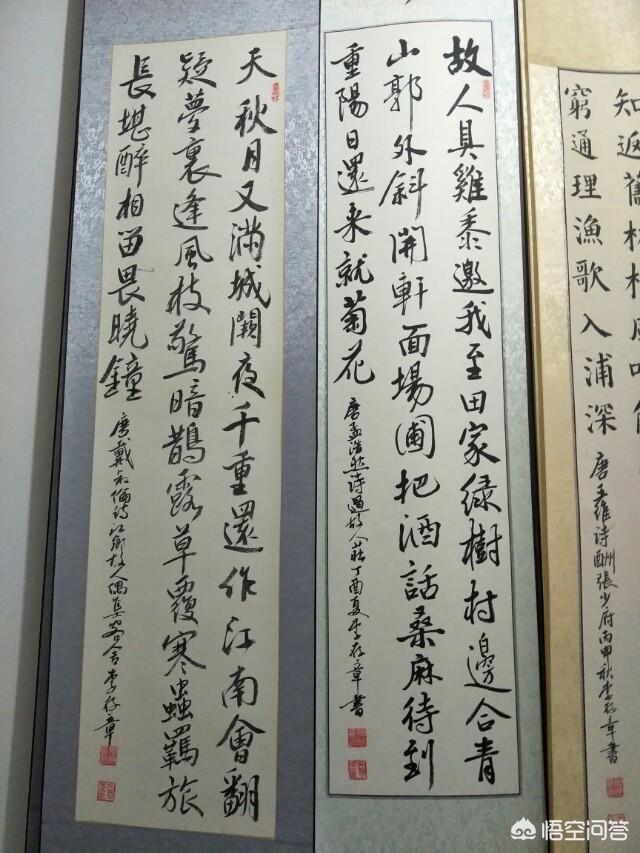 知返舊林松風吹
窮通理漁歌入浦深
唐王維詩酬張少府丙申秋李存章書
故人具雞黍邀我至田家綠樹村邊合青
山郭外斜開軒面場圃把酒話桑麻待到
重陽日還来就菊花
唐孟浩然詩過故人莊丁酉夏李存章書
天秋月又滿城闕夜千重還作江南會翻
疑夢裏逢風枝驚暗鵲露草覆寒蟲羈旅
長堪醉相留畏曉鐘
唐戴叔倫詩江鄉故人偶集客舍李存章
悟空问答